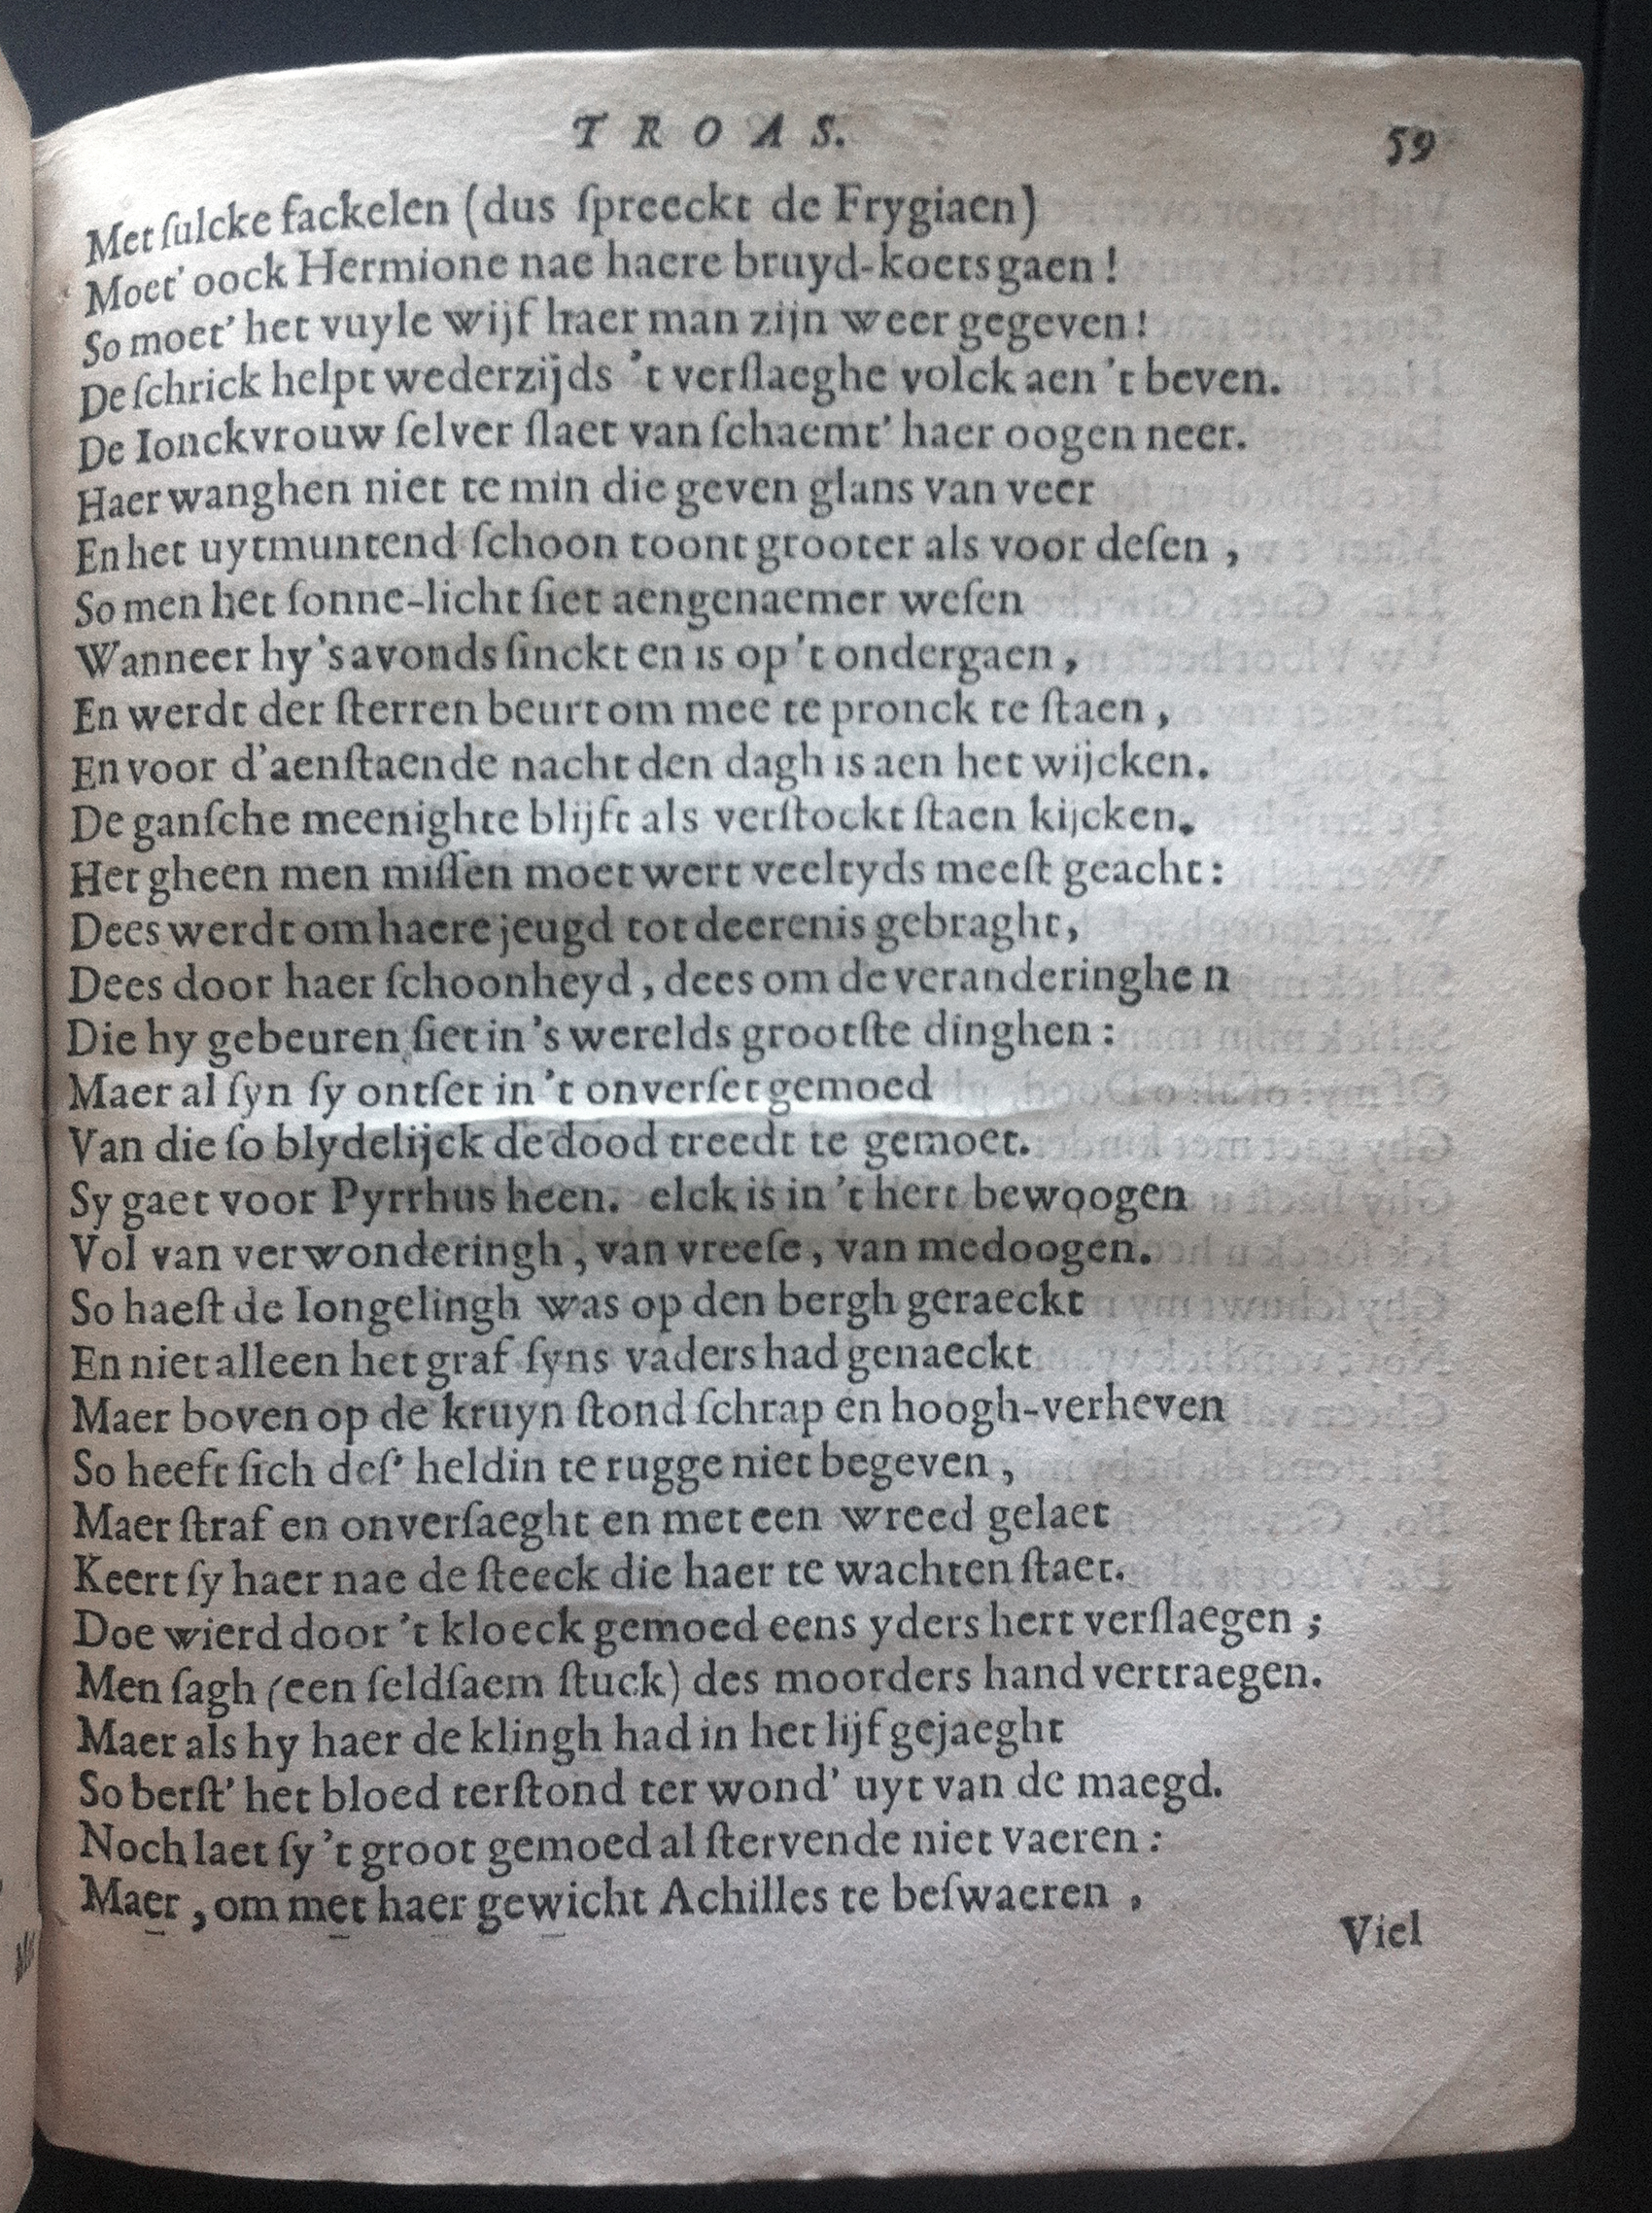 TROAS. 59
Met ſulcke fackelen (dus ſpreeckt de Frygiaen)
Moet' oock Hermione nae haere bruyd-koets gaen!
So moet' het vuyle wijf haer man zijn weer gegeven!
De ſchrick helpt wederzijds 't verſlaeghe volck aen 't beven.
De Ionckvrouw ſelver ſlaet van ſchaemt' haer oogen neer.
Haer wanghen niet te min die geven glans van veer
En het uytmuntend ſchoon toont grooter als voor deſen,
So men het ſonne-licht ſiet aengenaemer weſen
Wanneer hy 's avonds ſinckt en is op 't ondergaen,
En werdt der ſterren beurt om mee te pronck te ſtaen,
En voor d'aenſtaende nacht den dagh is aen het wijcken.
De ganſche meenighte blijft als verſtockt ſtaen kijcken.
Het gheen men miſſen moet wert veeltyds meeſt geacht:
Dees werdt om haere jeugd tot deerenis gebraght,
Dees door haer ſchoonheyd, dees om de veranderinghe n
Die hy gebeuren ſiet in 's werelds grootſte dinghen:
Maer al ſyn ſy ontſet in 't onverſet gemoed
Van die ſo blydelijck de dood treedt te gemoet.
Sy gaet voor Pyrrhus heen. elck is in 't hert bewoogen
Vol van verwonderingh, van vreeſe, van medoogen.
So haeſt de Iongelingh was op den bergh geraeckt
En niet alleen het graf ſyns vaders had genaeckt
Maer boven op de kruyn ſtond ſchrap en hoogh-verheven
So heeft ſich deſ' heldin te rugge niet begeven,
Maer ſtraf en onverſaeght en met een wreed gelaet
Keert ſy haer nae de ſteeck die haer te wachten ſtaet.
Doe wierd door 't kloeck gemoed eens yders hert verſlaegen;
Men ſagh (een ſeldſaem ſtuck) des moorders hand vertraegen.
Maer als hy haer de klingh had in het lijf gejaeght
So berſt' het bloed terſtond ter wond' uyt van de maegd.
Noch laet ſy 't groot gemoed al ſtervende niet vaeren:
Maer, om met haer gewicht Achilles te beſwaeren,
Viel